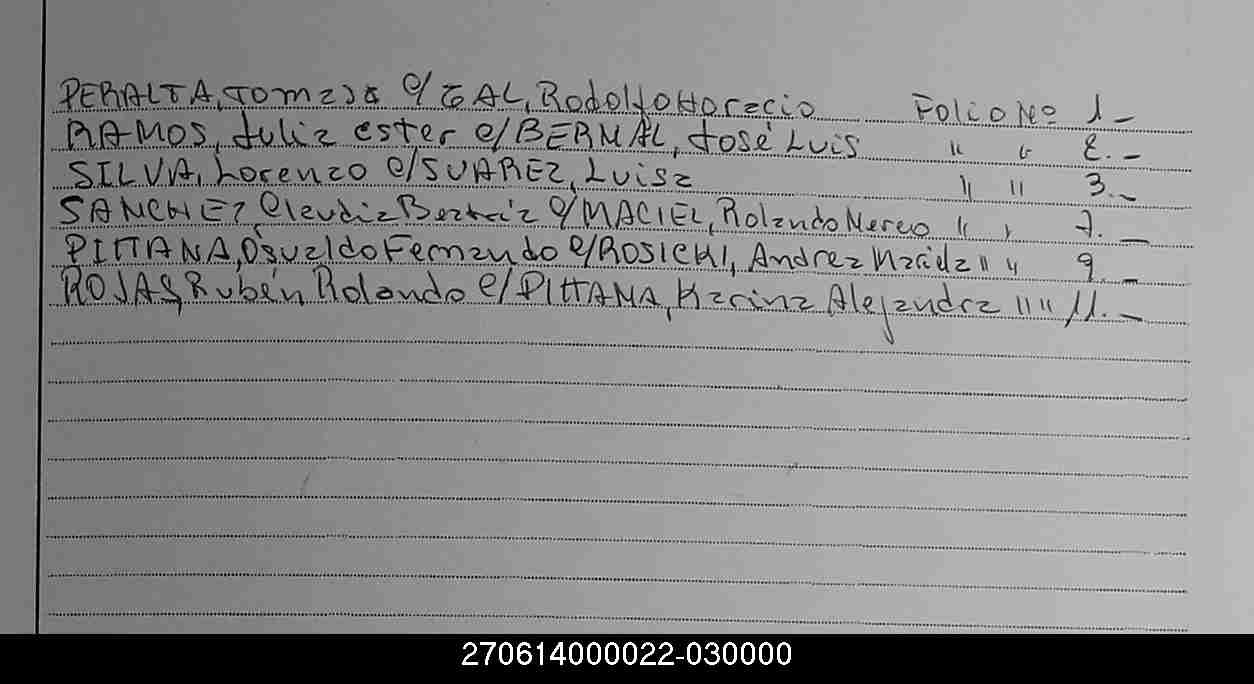 PERALTA, Tomasa c/ GAL, Rodolfo Horacio Folio Nº 1_
RAMOS, Julia ester c/ BERNAL, José Luis " " 2._
SILVA, Lorenzo c/ SUAREZ, Luisa " " 3._
SANCHEZ Claudia Beatriz c/ MACIEL, Rolando Nereo " " 7._
PITTANA, Osvaldo Fernando c/ ROSICKI, Andrea " " 9._
ROJAS, Rubén Rolando c/ PITTANA, Karina Alejandra " " 11._
270614000022-030000